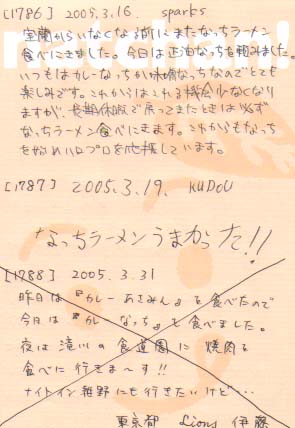 [1786] 2005.3.16. sparks
室蘭からいなくなる前にまたなっちラーメン
食べにきました。今日は正油なっちを頼みました。
いつもはカレーなっちか味噌なっちなのでとても
楽しみです。これからはこれる機会少なくなり
ますが、長期休暇で戻ってきたときは必ず
なっちラーメン食べにきます。これからもなっち
を始めハロプロを応援しています。
[1787] 2005.3.19. KUDOU
なっちラーメンうまかった!!
[1788] 2005.3.31
昨日は『カレーあさみん』を食べたので
今日は『カレーなっち』を食べました。
夜は滝川の食道園に焼肉を
食べに行きま〜す!!
ナイトイン雅野にも行きたいけど…
東京都 Lions 伊藤